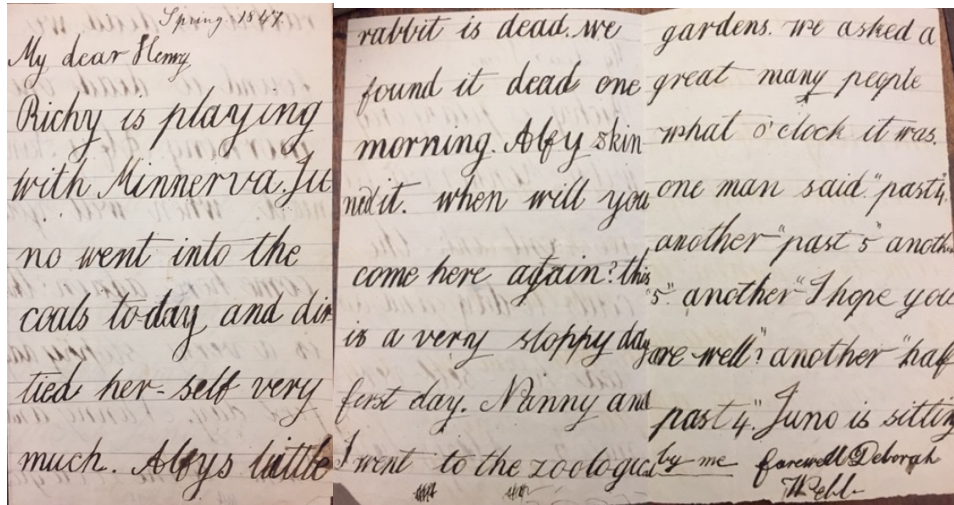 Spring 1847
My dear Henry
Richy is playing
with Minnerva. Ju
no went into the
coals to day and dir
tied her-self very
much. Alfys little
rabbit is dead. we
found it dead one
morning. Alfy skin
ned it. when will you
come here again? this
is a very sloppy day
first day. Nanny and
I went to the zoological
gardens. we asked a
great many people
what o'clock it was.
one man said "past 4.
another "past 5" another
"5" another "I hope you
are well? another "half
past 4". Juno is sitting
by me farewell Deborah
Webb